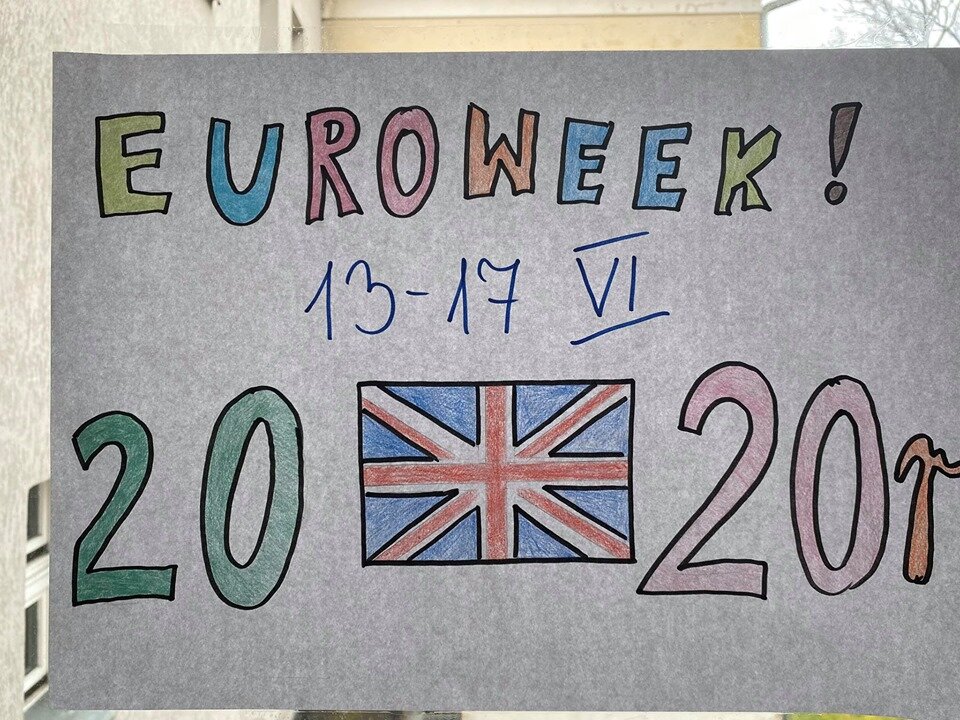 EUROWEEK!
13-17 VI
20 20r